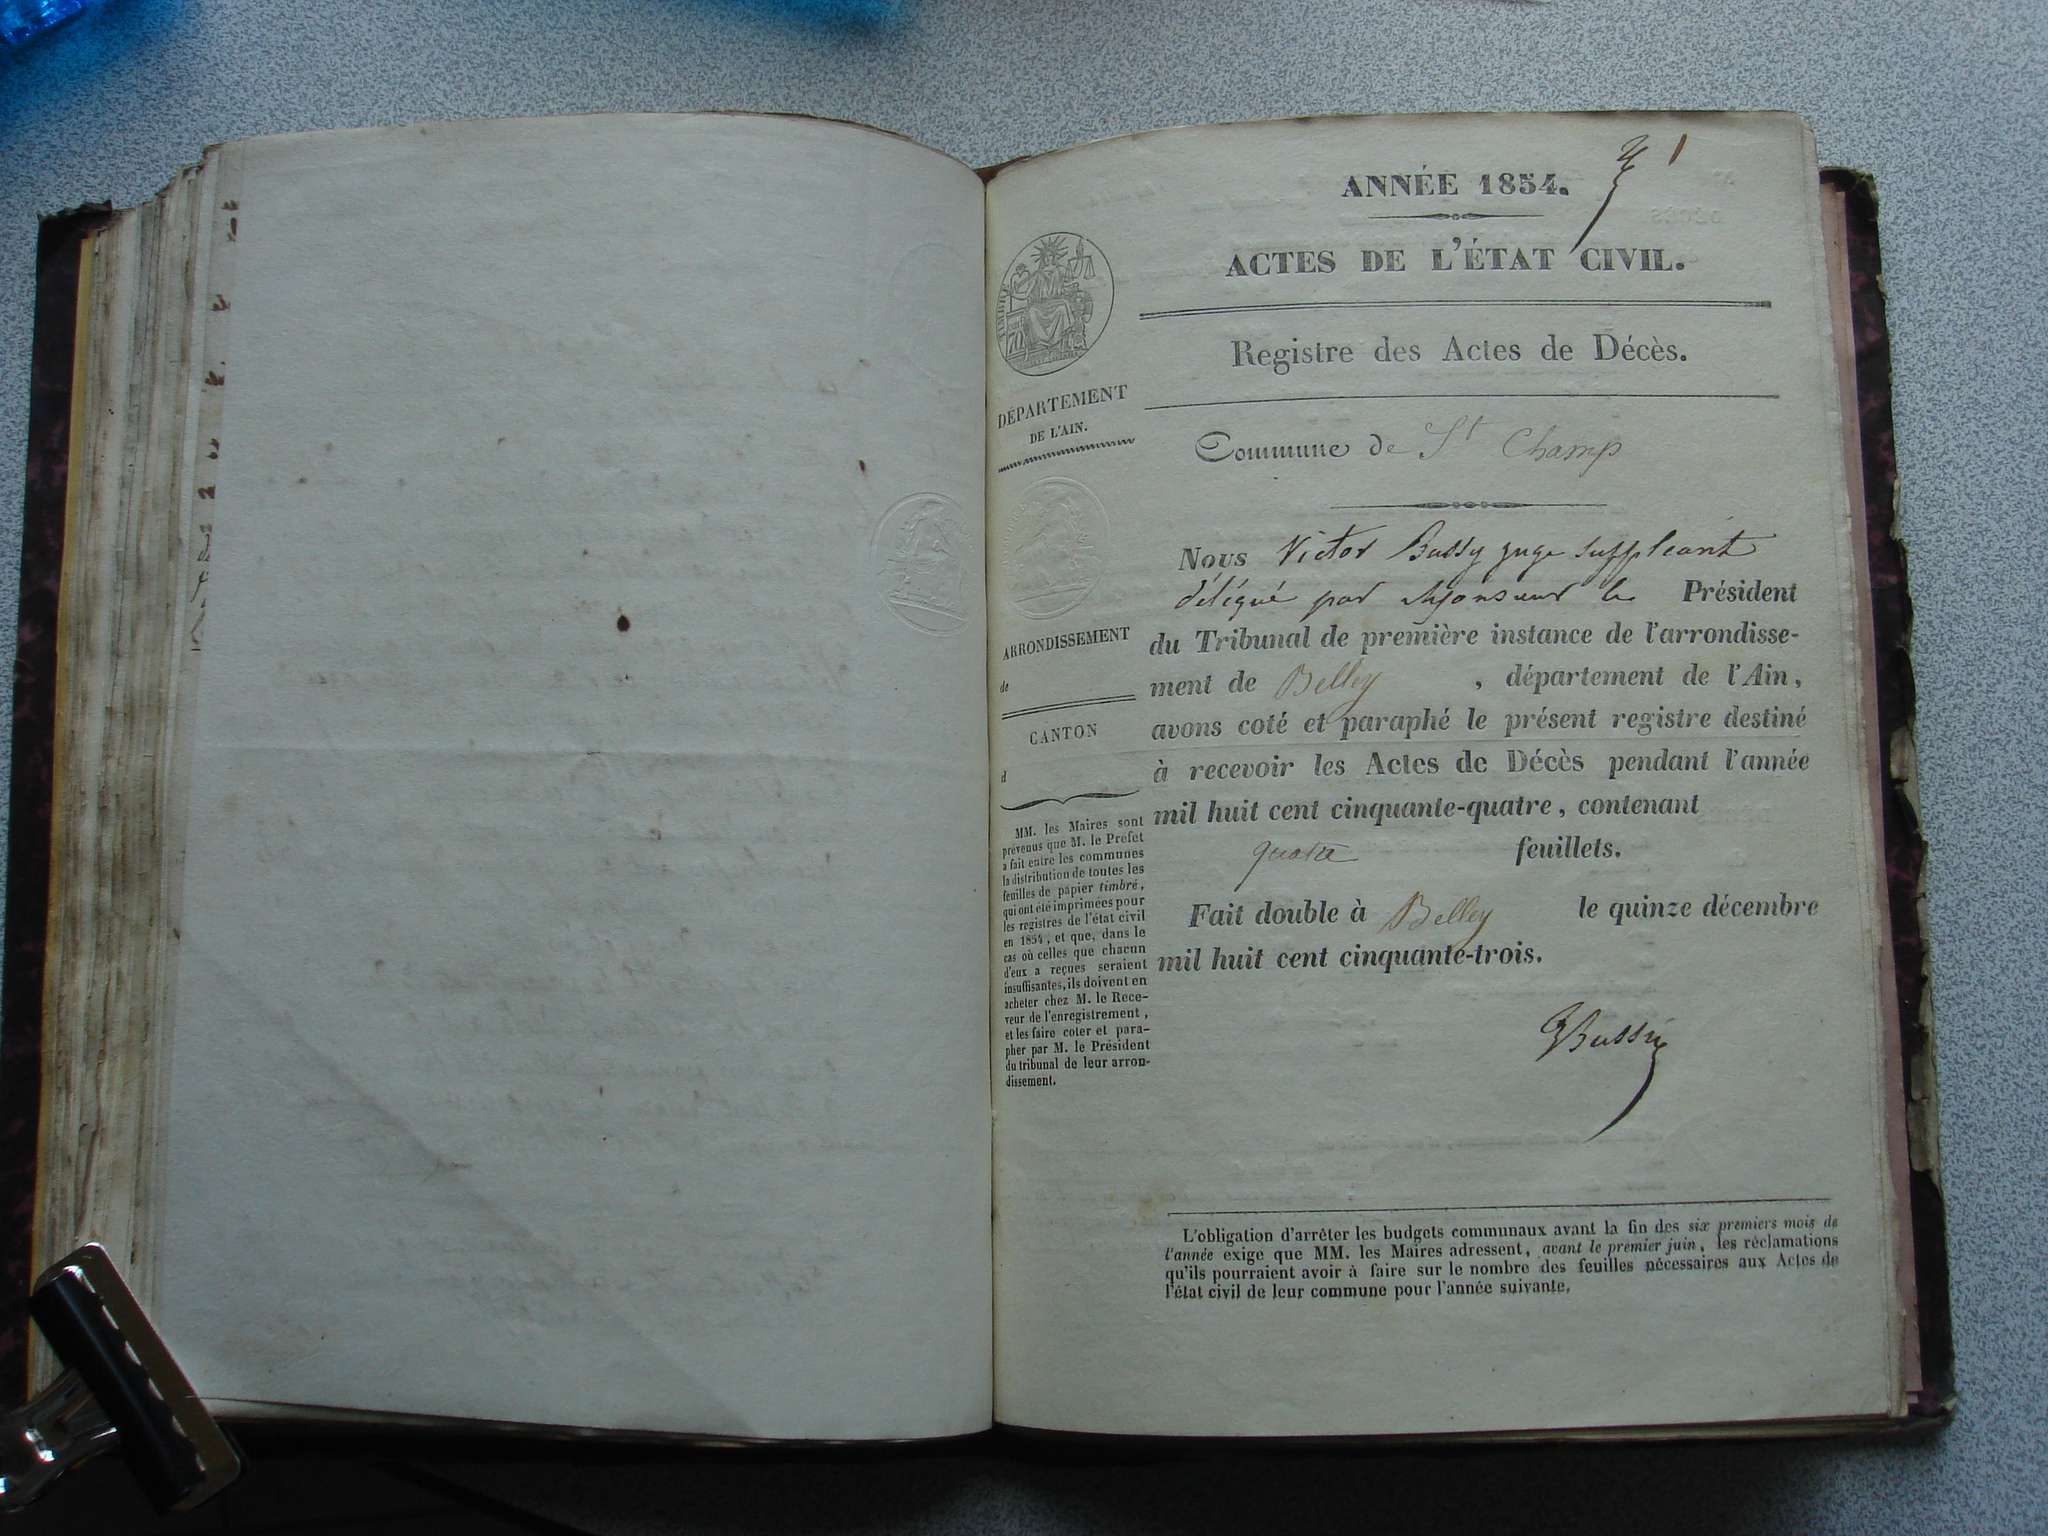 1
ANNÉE 1854.
ACTES DE L'ÉTAT CIVIL.
Registre des Actes de Décès.
TIMBRE
DÉPARTEMENT
DE L'AIN.
ARRONDISSEMENT
de
CANTON
d
MM. les Maires sont
prévenus que M. le Préfet
a fait entre les communes
la distribution de toutes les
feuilles de papier timbré,
qui ont été imprimées pour
les registres de l'état civil
en 1854, et que, dans le
cas où celles que chacun
d'eux a reçues seraient
insuffisantes, ils doivent en
acheter chez M. le Rece-
veur de l'enregistrement,
et les faire coter et para-
pher par M. le Président
du tribunal de leur arron-
dissement.
Commune de St Champ
Nous Victor Bussy juge suppleant
délégué par Monsieur le Président
du Tribunal de première instance de l'arrondisse-
ment de Belley , département de l'Ain,
avons coté et paraphé le présent registre destiné
à recevoir les Actes de Décès pendant l'année
mil huit cent cinquante-quatre, contenant
quatre feuillets.
Fait double à Belley le quinze décembre
mil huit cent cinquante-trois.
VBussy
L'obligation d'arrêter les budgets communaux avant la fin des six premiers mois de
l'année exige que MM. les Maires adressent, avant le premier juin, les réclamations
qu'ils pourraient avoir à faire sur le nombre des feuilles nécessaires aux Actes de
l'état civil de leur commune pour l'année suivante.